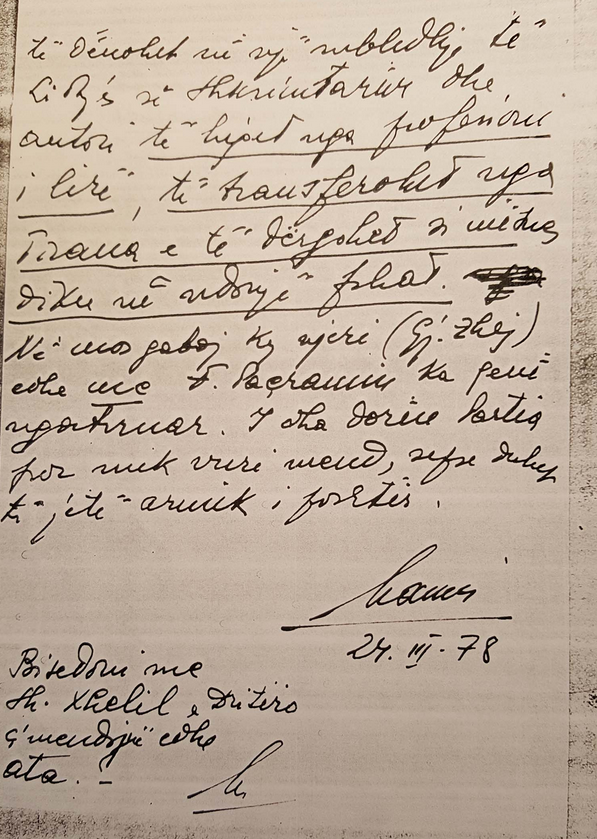 të dënohet në një mbledhje të
Lidhjës së Shkrimtarëve dhe
autori të hiqet nga profesioni
i lirë, të transferohet nga
Tirana e të dërgohet si mësues
diku në ndonjë fshat.
Në mos gaboj ky njeri (Gj. Zhej)
edhe me F. Paçramin ka qenë
ngatrruar. I dha dorën Partia
por nuk vuri mend, sepse duhet
të jetë armik i fortë.
24. III. 78
Bisedoni me
Sh. Xhelil e Dritëro
ç'mendojnë edhe
ata. -